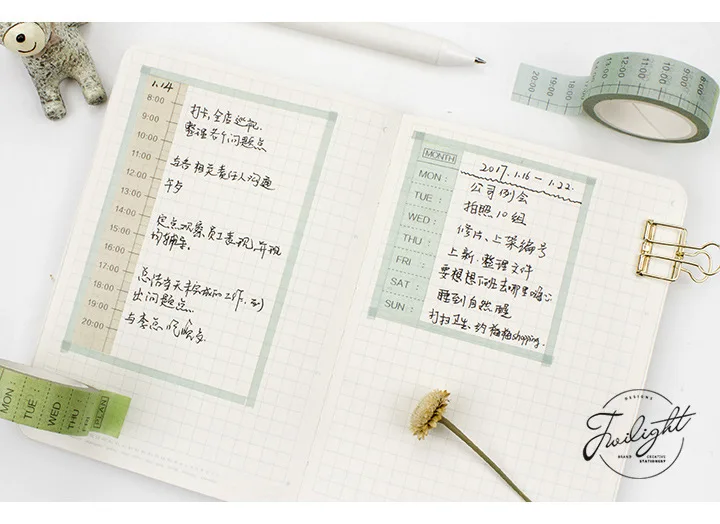 1.14
8:00
9:00 打卡,全店巡视.
10:00 整理各个问题点
11:00
12:00 与各相关责任人沟通
13:00 午歺
14:00
15:00 定点观察员工表现,并现
16:00 场辅导.
17:00
18:00 总结当天未完成的工作,列
19:00 出问题点.
20:00 与李总吃晚歺
MONTH 2017.1.16 — 1.22.
MON: 公司例会
TUE: 拍照10组
WED: 修片、上架编号
THU: 上新.整理文件
FRI: 要想想下班去哪里嗨心
SAT: 睡到自然醒
SUN: 打扫卫生、约梅梅shopping.
20:00 19:00 18:00
13:00 12:00 11:00 10:00 9:00 8:00
MON: TUE: WED: THU: PLAN
DESIGNS
Twilight
BRAND CREATIVE
STATIONERY